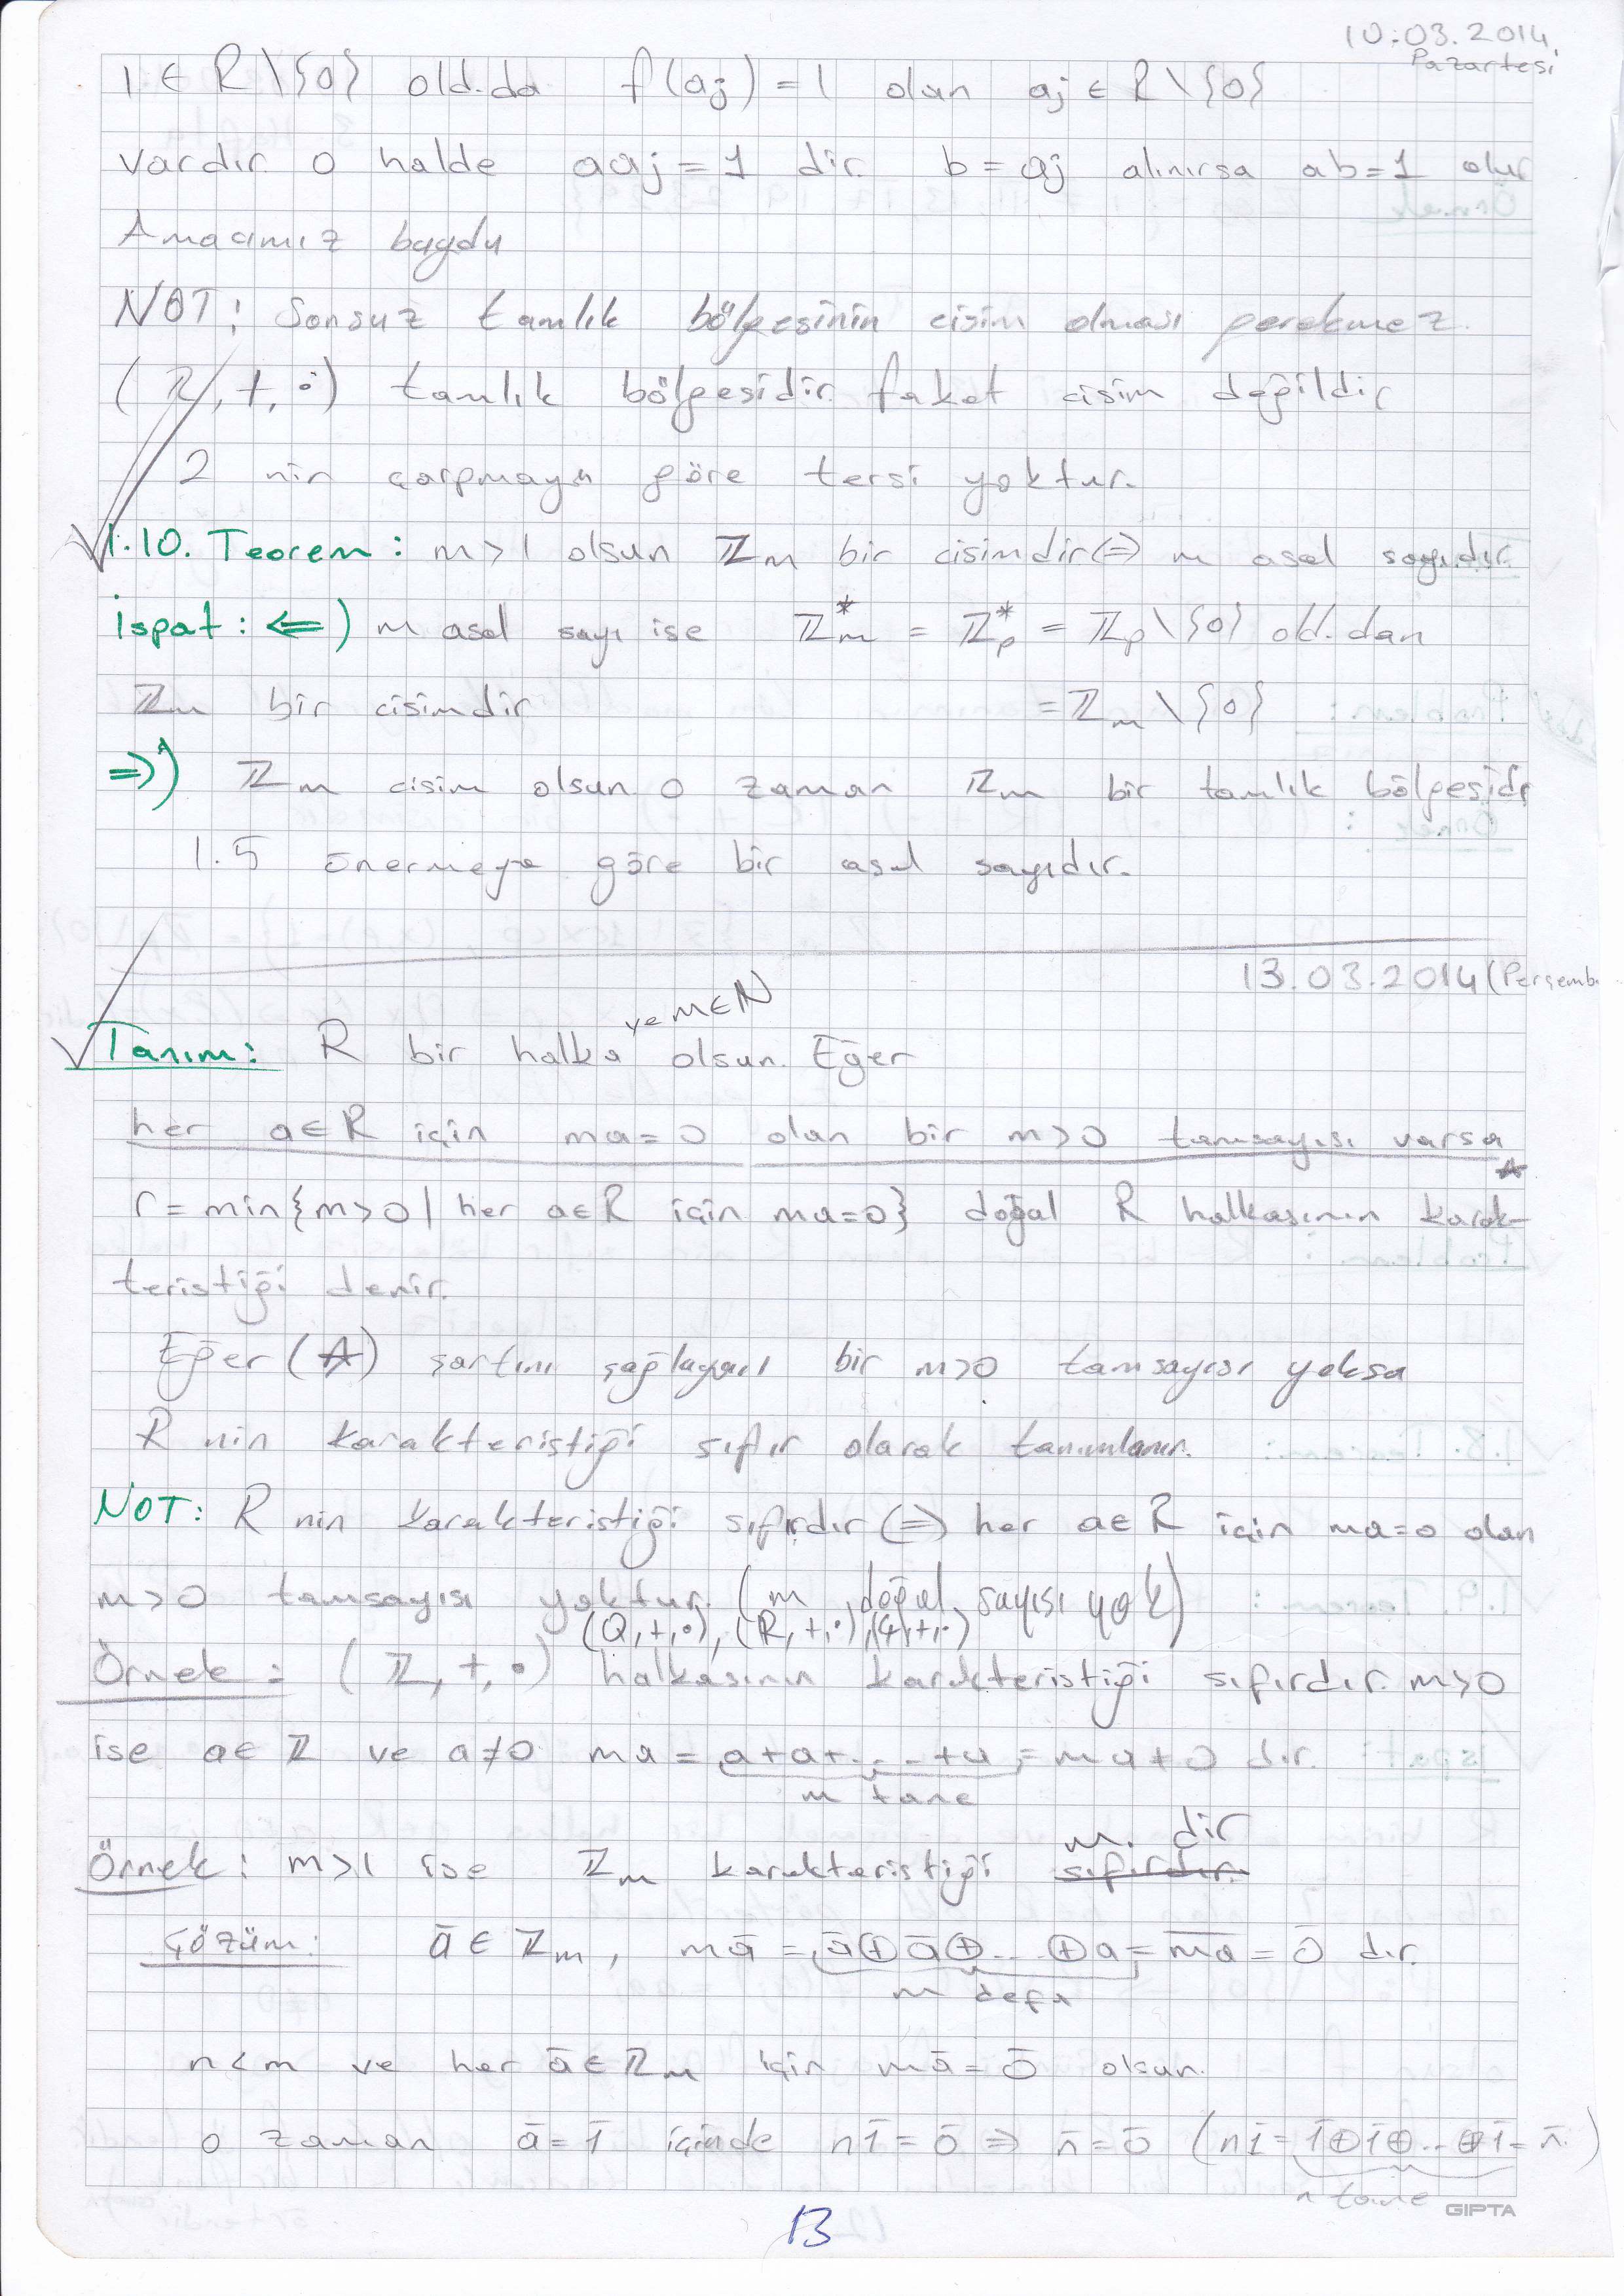 10.03.2014
Pazartesi
1 ∈ R\{0} old.da f(aj) = 1 olan aj ∈ R\{0}
vardır. O halde aaj = 1 dir. b = aj alınırsa ab=1 olur
Amacımız buydu
NOT: Sonsuz tamlık bölgesinin cisim olması gerekmez.
(Z, +, •) tamlık bölgesidir. fakat cisim değildir
2 nin çarpmaya göre tersi yoktur.
1.10. Teorem: m>1 olsun Zm bir cisimdir ⇔ m asal sayıdır.
İspat: ⇐) m asal sayı ise Zm* = Zp* = Zp\{0} old.dan
Zm bir cisimdir = Zm\{0}
⇒) Zm cisim olsun. O zaman Zm bir tamlık bölgesidir
1.5 önermeye göre bir asal sayıdır.
13.03.2014 (Perşembe
ve m∈N
Tanım: R bir halka olsun. Eğer
her a∈R için ma=0 olan bir m>0 tamsayısı varsa
r = min{m>0 | her a∈R için ma=0} doğal R halkasının karak-
teristiği denir.
Eğer (☆) şartını sağlayan bir m>0 tamsayısı yoksa
R nin karakteristiği sıfır olarak tanımlanır.
NOT: R nin karakteristiği sıfırdır ⇔ her a∈R için ma=0 olan
m>0 tamsayısı yoktur. (m doğal sayısı yok)
(Q,+,•), (R,+,•), (C,+,•)
Örnek: (Z,+,•) halkasının karakteristiği sıfırdır. m>0
ise a∈Z ve a≠0 ma = a+a+...+a = ma ≠ 0 dır.
m tane
m. dir
Örnek: m>1 ise Zm karakteristiği sıfırdır.
Çözüm: ā ∈ Zm, mā = ā⊕ā⊕...⊕a = m̅a̅ = 0̄ dır.
m defa
n<m ve her ā∈Zm için mā = 0̄ olsun.
o zaman ā=1̄ içinde n1̄=0̄ ⇒ n̄=0̄ (n1̄ = 1̄⊕1̄⊕...⊕1̄ = n̄)
n tane
GIPTA
13